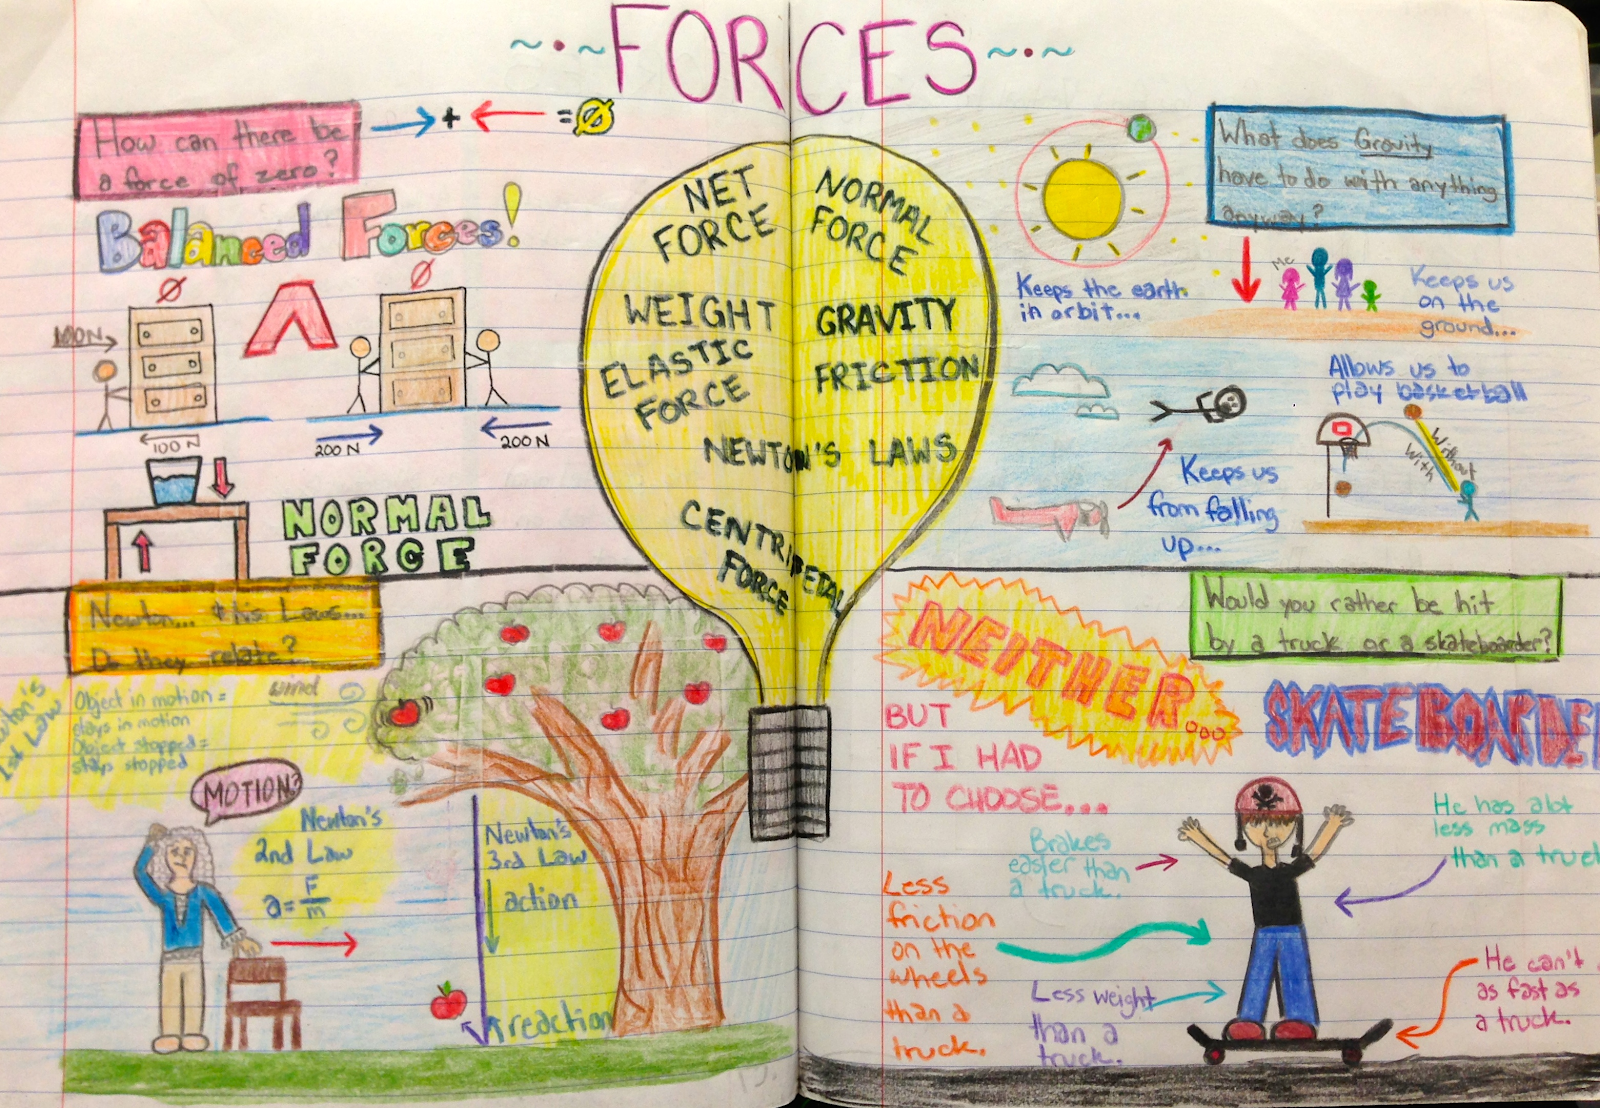 ~·~FORCES~·~
How can there be
a force of zero?
+ = Ø
Balanced Forces!
Ø
Ø
100N
100 N
200 N
200 N
NORMAL
FORCE
NET
FORCE
NORMAL
FORCE
WEIGHT
GRAVITY
ELASTIC
FORCE
FRICTION
NEWTON'S LAWS
CENTRIPEDAL
FORCE
What does Gravity
have to do with anything
anyway?
Keeps the earth
in orbit...
Me
Keeps us
on the
ground...
Keeps us
from falling
up...
Allows us to
play basketball
Without
With
Newton... & his Laws...
Do they relate?
1st Law
Object in motion =
stays in motion
Object stopped =
stays stopped
wind
MOTION?
Newton's
2nd Law
a = F
m
Newton's
3rd Law
action
reaction
Would you rather be hit
by a truck or a skateboarder?
NEITHER...
BUT
IF I HAD
TO CHOOSE...
SKATEBOARDE
Brakes
easier than
a truck.
He has alot
less mass
than a truck
Less
friction
on the
wheels
than a
truck.
Less weight
than a
truck.
He can't
as fast as
a truck.